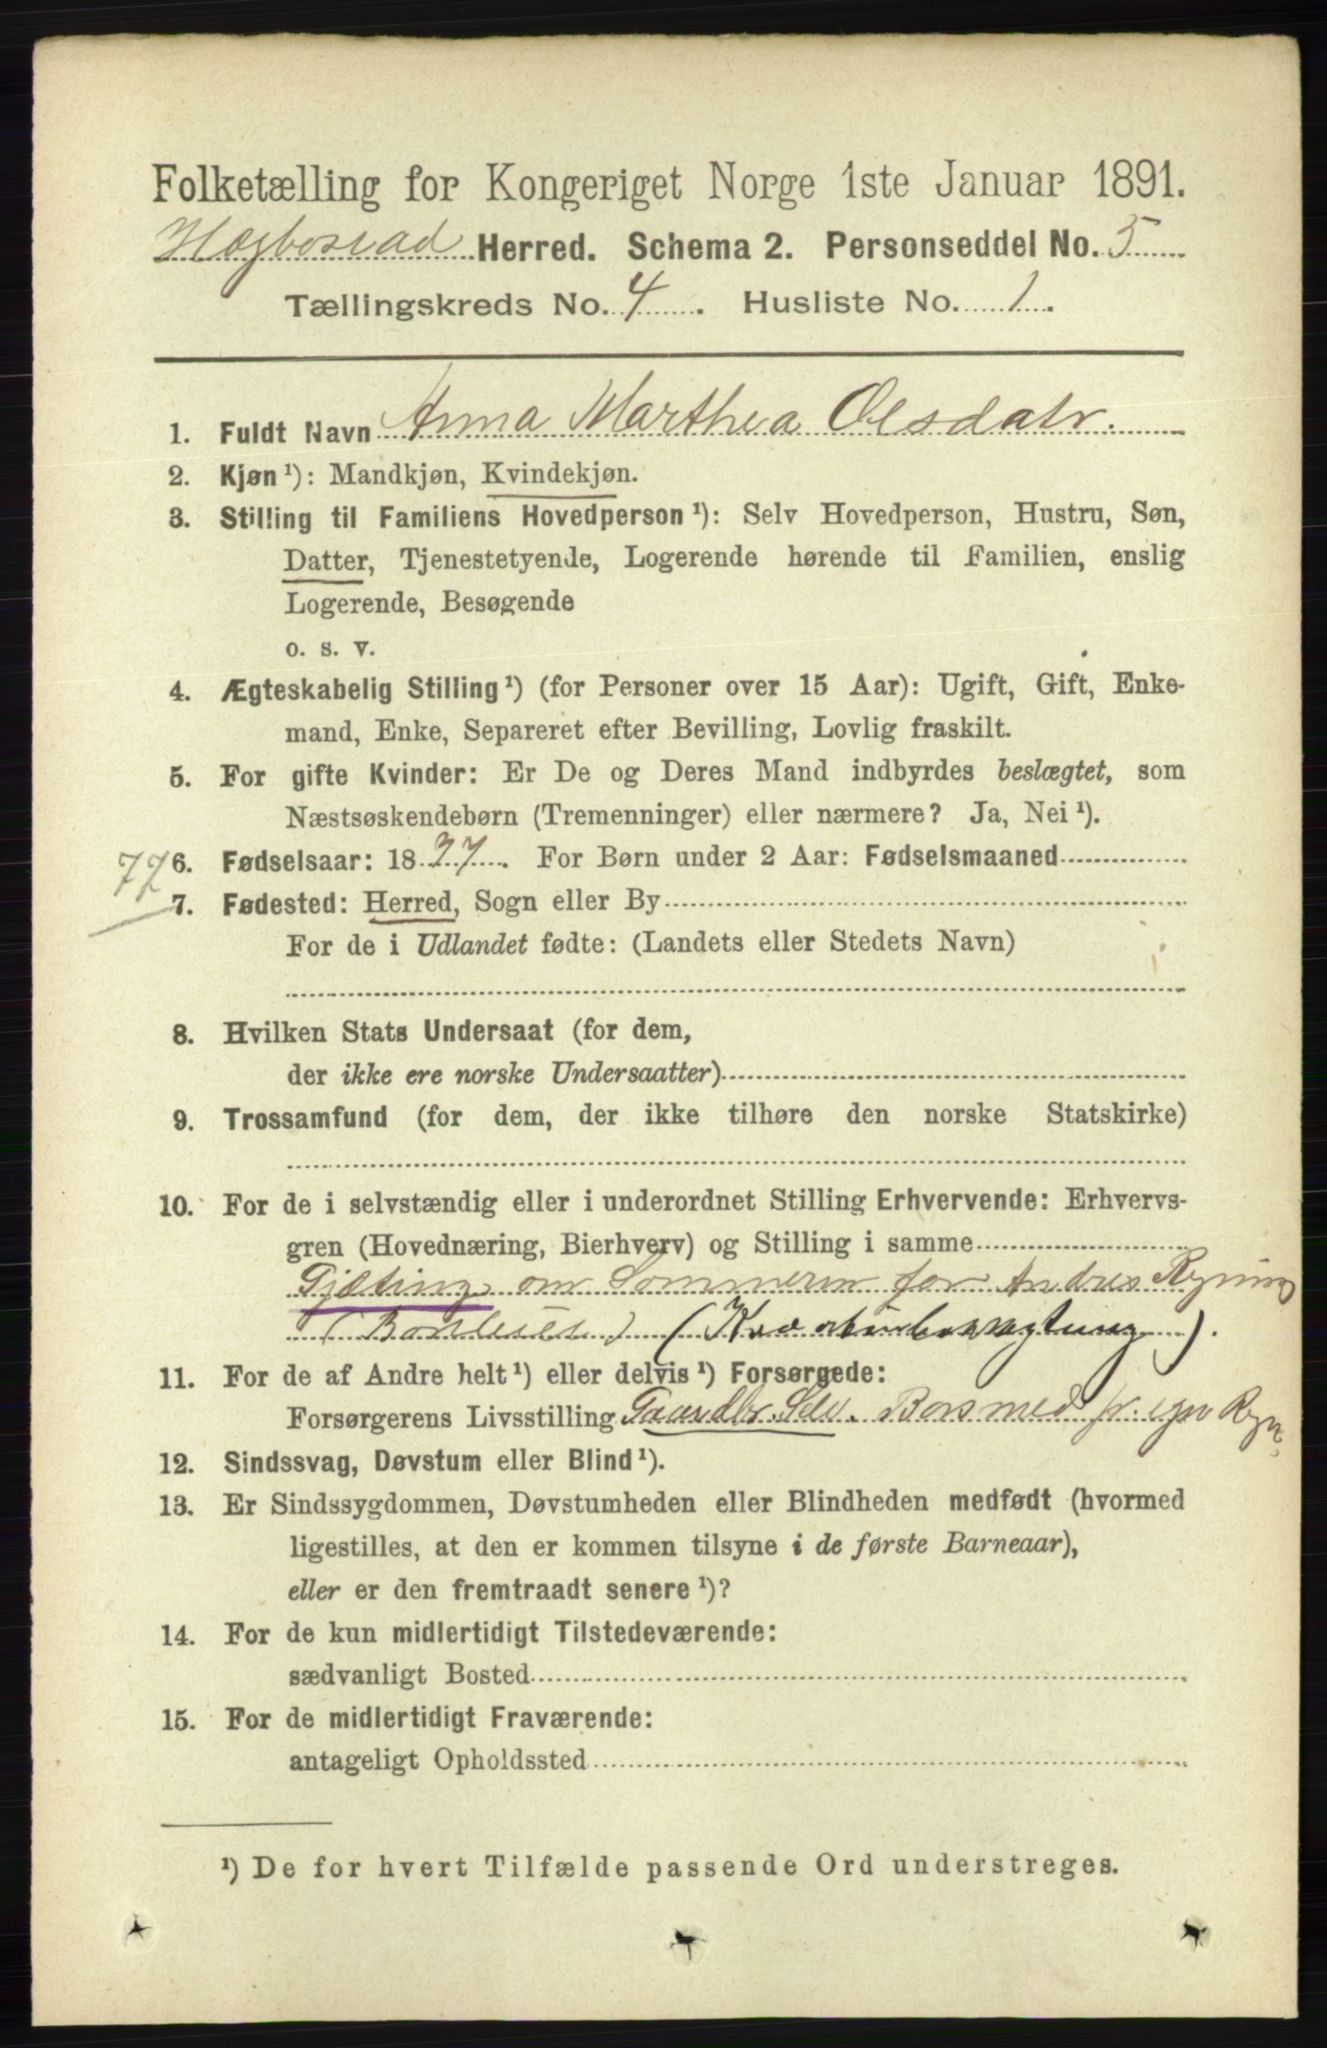 Folketælling for Kongeriget Norge 1ste Januar 1891.
Hægbostad Herred. Schema 2. Personseddel No. 5
Tællingskreds No. 4. Husliste No. 1.
1. Fuldt Navn Anna Marthea Olsdatr.
2. Kjøn¹): Mandkjøn, Kvindekjøn.
3. Stilling til Familiens Hovedperson¹): Selv Hovedperson, Hustru, Søn,
Datter, Tjenestetyende, Logerende hørende til Familien, enslig
Logerende, Besøgende
o. s. v.
4. Ægteskabelig Stilling¹) (for Personer over 15 Aar): Ugift, Gift, Enke-
mand, Enke, Separeret efter Bevilling, Lovlig fraskilt.
5. For gifte Kvinder: Er De og Deres Mand indbyrdes beslægtet, som
Næstsøskendebørn (Tremenninger) eller nærmere? Ja, Nei¹).
77
6. Fødselsaar: 1877. For Børn under 2 Aar: Fødselsmaaned
7. Fødested: Herred, Sogn eller By
For de i Udlandet fødte: (Landets eller Stedets Navn)
8. Hvilken Stats Undersaat (for dem,
der ikke ere norske Undersaatter)
9. Trossamfund (for dem, der ikke tilhøre den norske Statskirke)
10. For de i selvstændig eller i underordnet Stilling Erhvervende: Erhvervs-
gren (Hovednæring, Bierhverv) og Stilling i samme
Gjæting om Sommeren for Andres Regning
11. For de af Andre helt¹) eller delvis¹) Forsørgede:
Forsørgerens Livsstilling Gaardbr. Selv.
12. Sindssvag, Døvstum eller Blind¹).
13. Er Sindssygdommen, Døvstumheden eller Blindheden medfødt (hvormed
ligestilles, at den er kommen tilsyne i de første Barneaar),
eller er den fremtraadt senere¹)?
14. For de kun midlertidigt Tilstedeværende:
sædvanligt Bosted
15. For de midlertidigt Fraværende:
antageligt Opholdssted
¹) De for hvert Tilfælde passende Ord understreges.